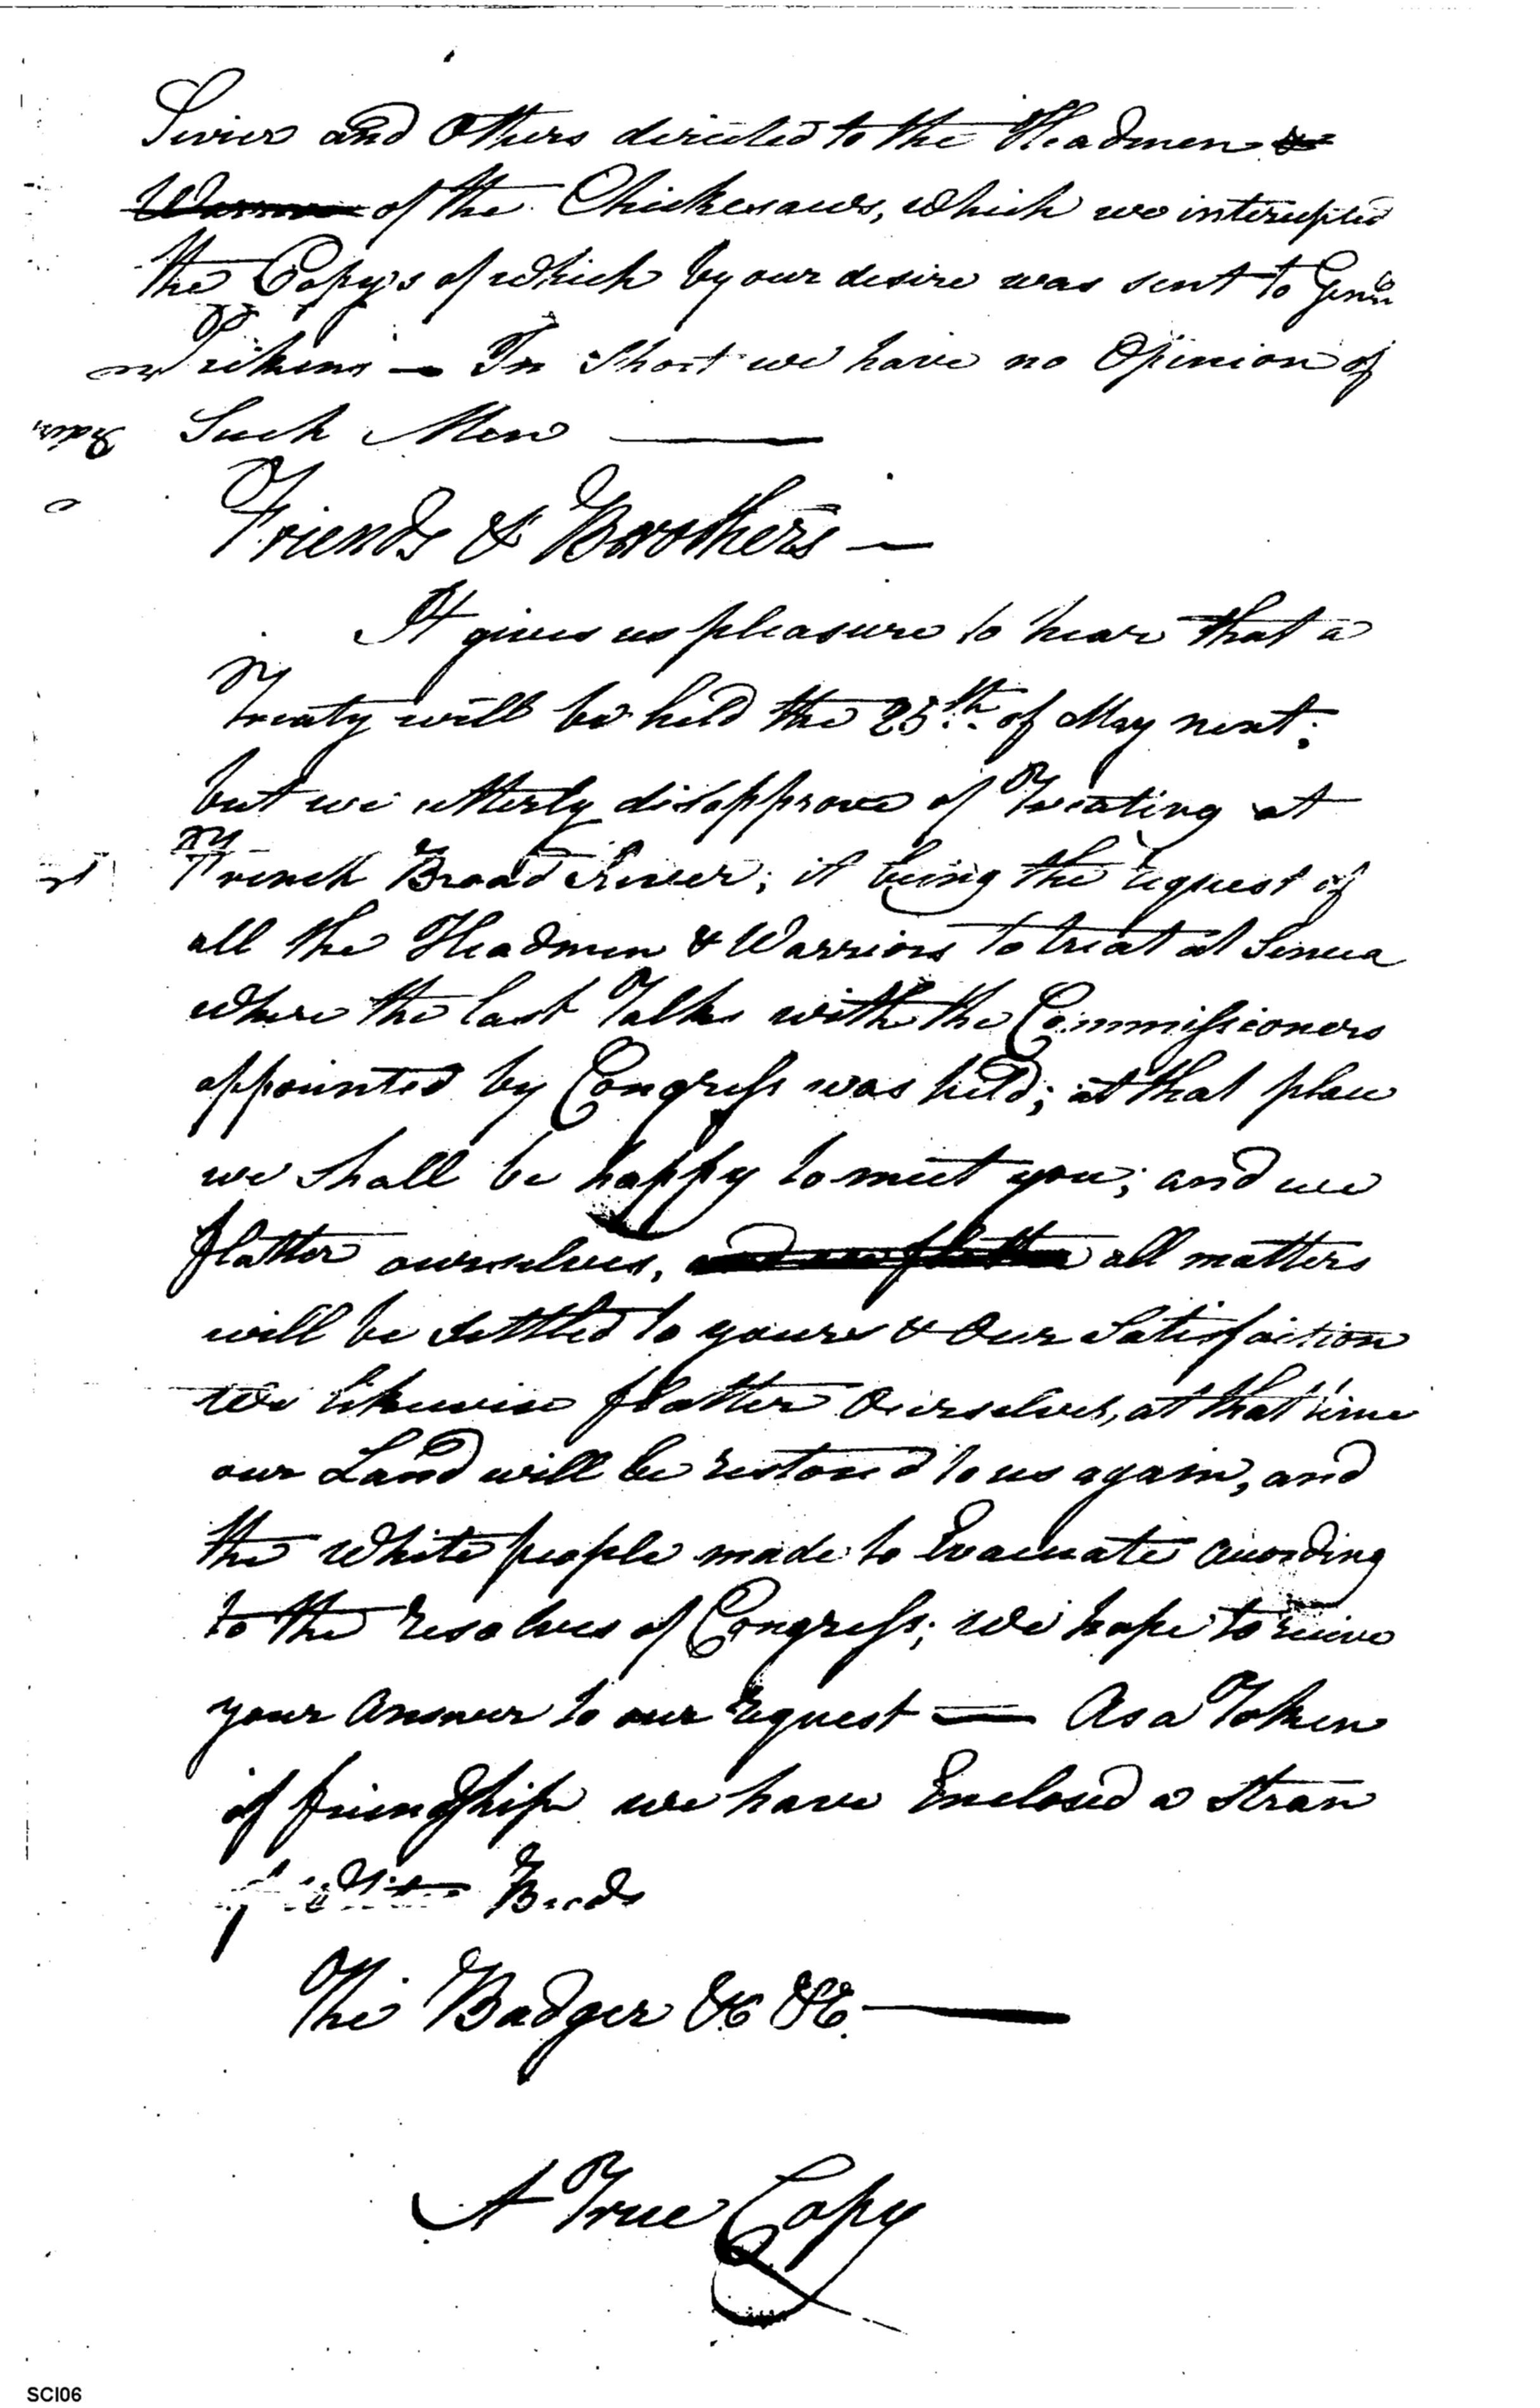 Sevier and Others directed to the Headmen &
Warriors of the Chickesaws, which we interrupted
the Copy's of which by our desire was sent to Genl.
Pikens — In Short we have no Opinion of
Such Men —
Friends & Brothers —
It gives us pleasure to hear that a
Treaty will be held the 25th. of May next;
but we utterly disapprove of Treating at
French Broad River; it being the request of
all the Headmen & Warriors to treat at Seneca
where the last Talks with the Commissioners
appointed by Congress was held; at that place
we shall be happy to meet you; and we
flatter ourselves, and we flatter all matters
will be settled to yours & Our Satisfaction
We likewise flatter Ourselves, at that time
our Land will be restored to us again, and
the White people made to Evacuate according
to the resolves of Congress; We hope to receive
your answer to our request — As a Token
of friendship we have Enclosed a Stran
of White Beads
The Badger &c &c.
A True Copy
SCI06